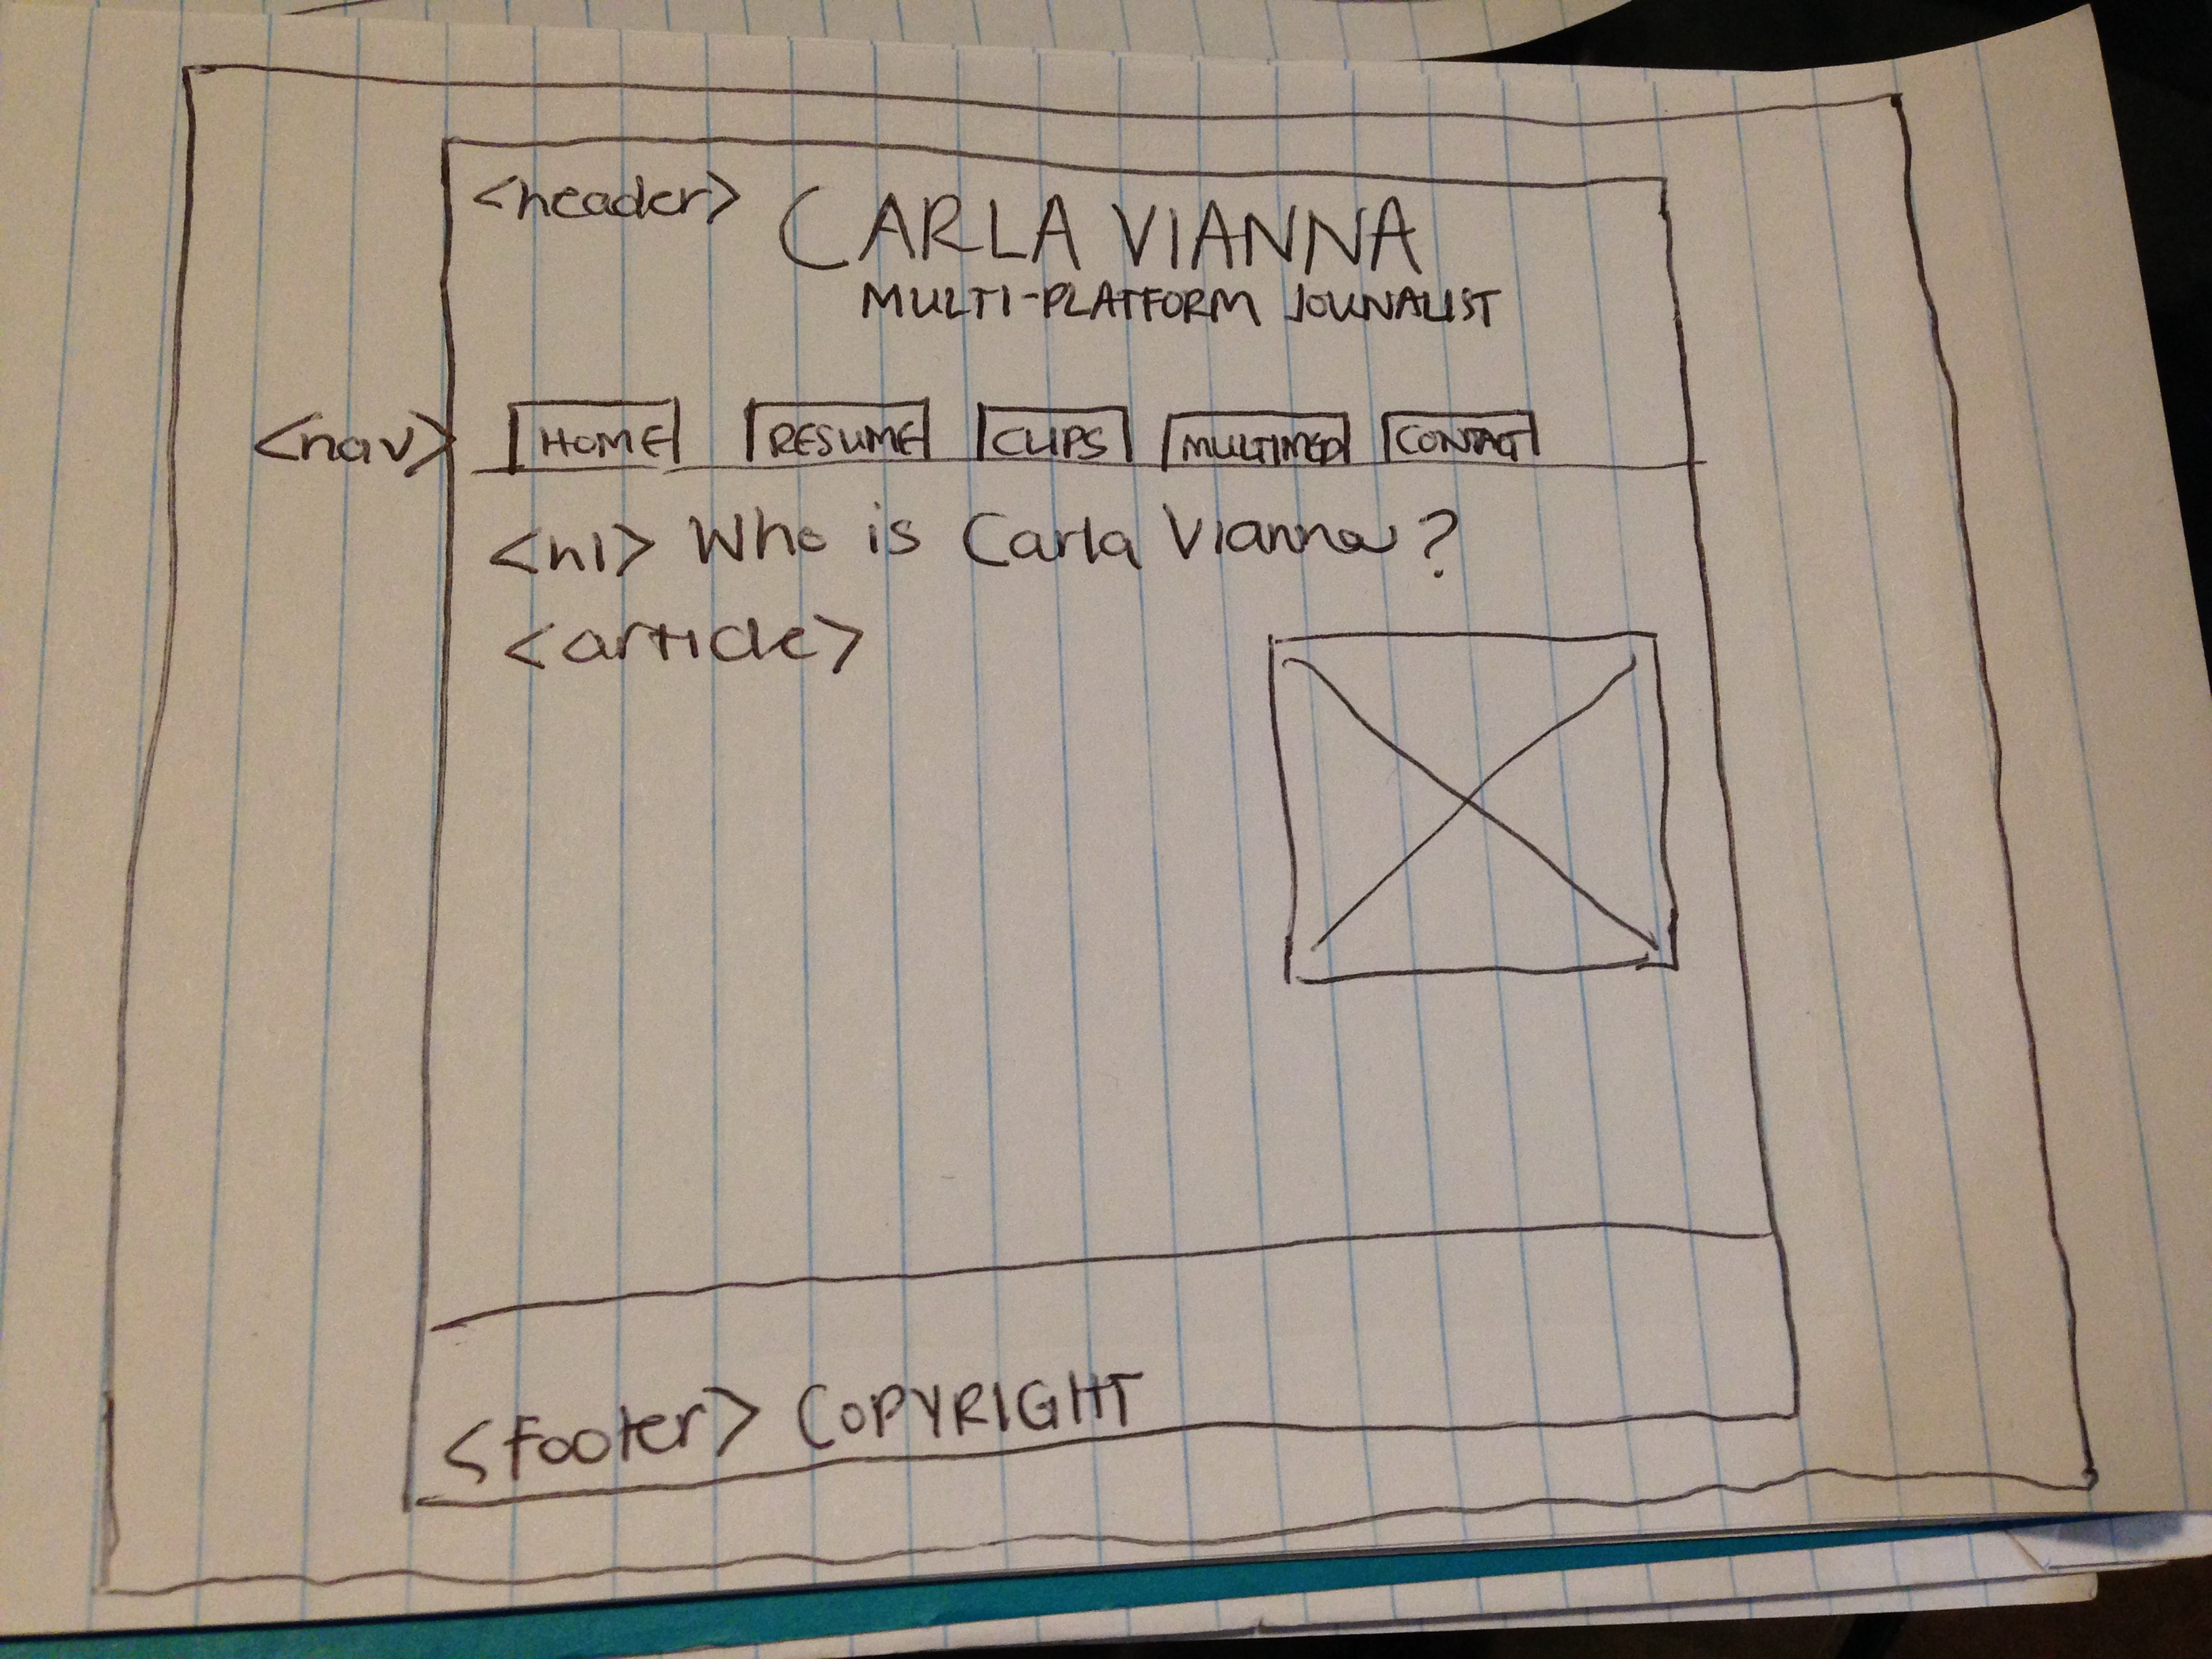 <header> CARLA VIANNA
MULTI-PLATFORM JOUNALIST
<nav> HOME RESUME CLIPS MULTIMED CONTACT
<h1> Who is Carla Vianna?
<article>
<footer> COPYRIGHT